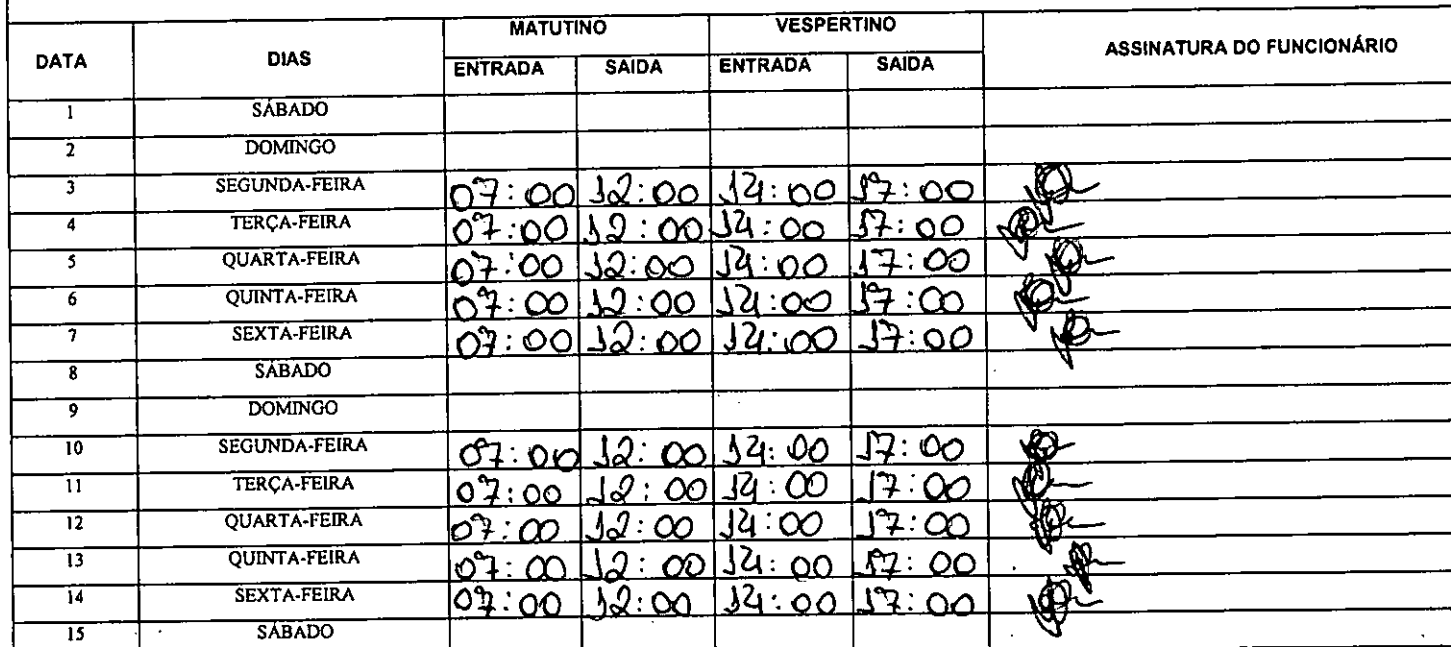 MATUTINO VESPERTINO
DATA DIAS ASSINATURA DO FUNCIONÁRIO
ENTRADA SAIDA ENTRADA SAIDA
1 SÁBADO
2 DOMINGO
3 SEGUNDA-FEIRA 07:00 12:00 14:00 17:00
4 TERÇA-FEIRA 07:00 12:00 14:00 17:00
5 QUARTA-FEIRA 07:00 12:00 14:00 17:00
6 QUINTA-FEIRA 07:00 12:00 14:00 17:00
7 SEXTA-FEIRA 07:00 12:00 14:00 17:00
8 SÁBADO
9 DOMINGO
10 SEGUNDA-FEIRA 07:00 12:00 14:00 17:00
11 TERÇA-FEIRA 07:00 12:00 14:00 17:00
12 QUARTA-FEIRA 07:00 12:00 14:00 17:00
13 QUINTA-FEIRA 07:00 12:00 14:00 17:00
14 SEXTA-FEIRA 07:00 12:00 14:00 17:00
15 SÁBADO